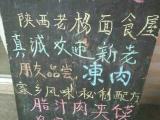 陕西老杨面食屋
真诚欢迎新老
朋友品尝 凍肉
家乡风味秘制配方
脂汁肉夹馍